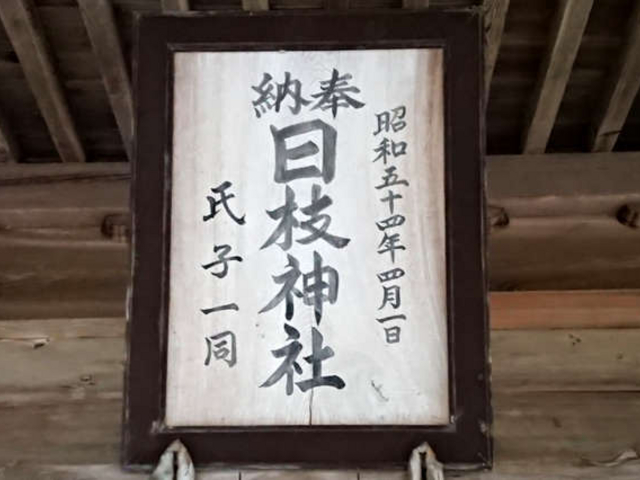 奉納
日枝神社
昭和五十四年四月一日
氏子一同